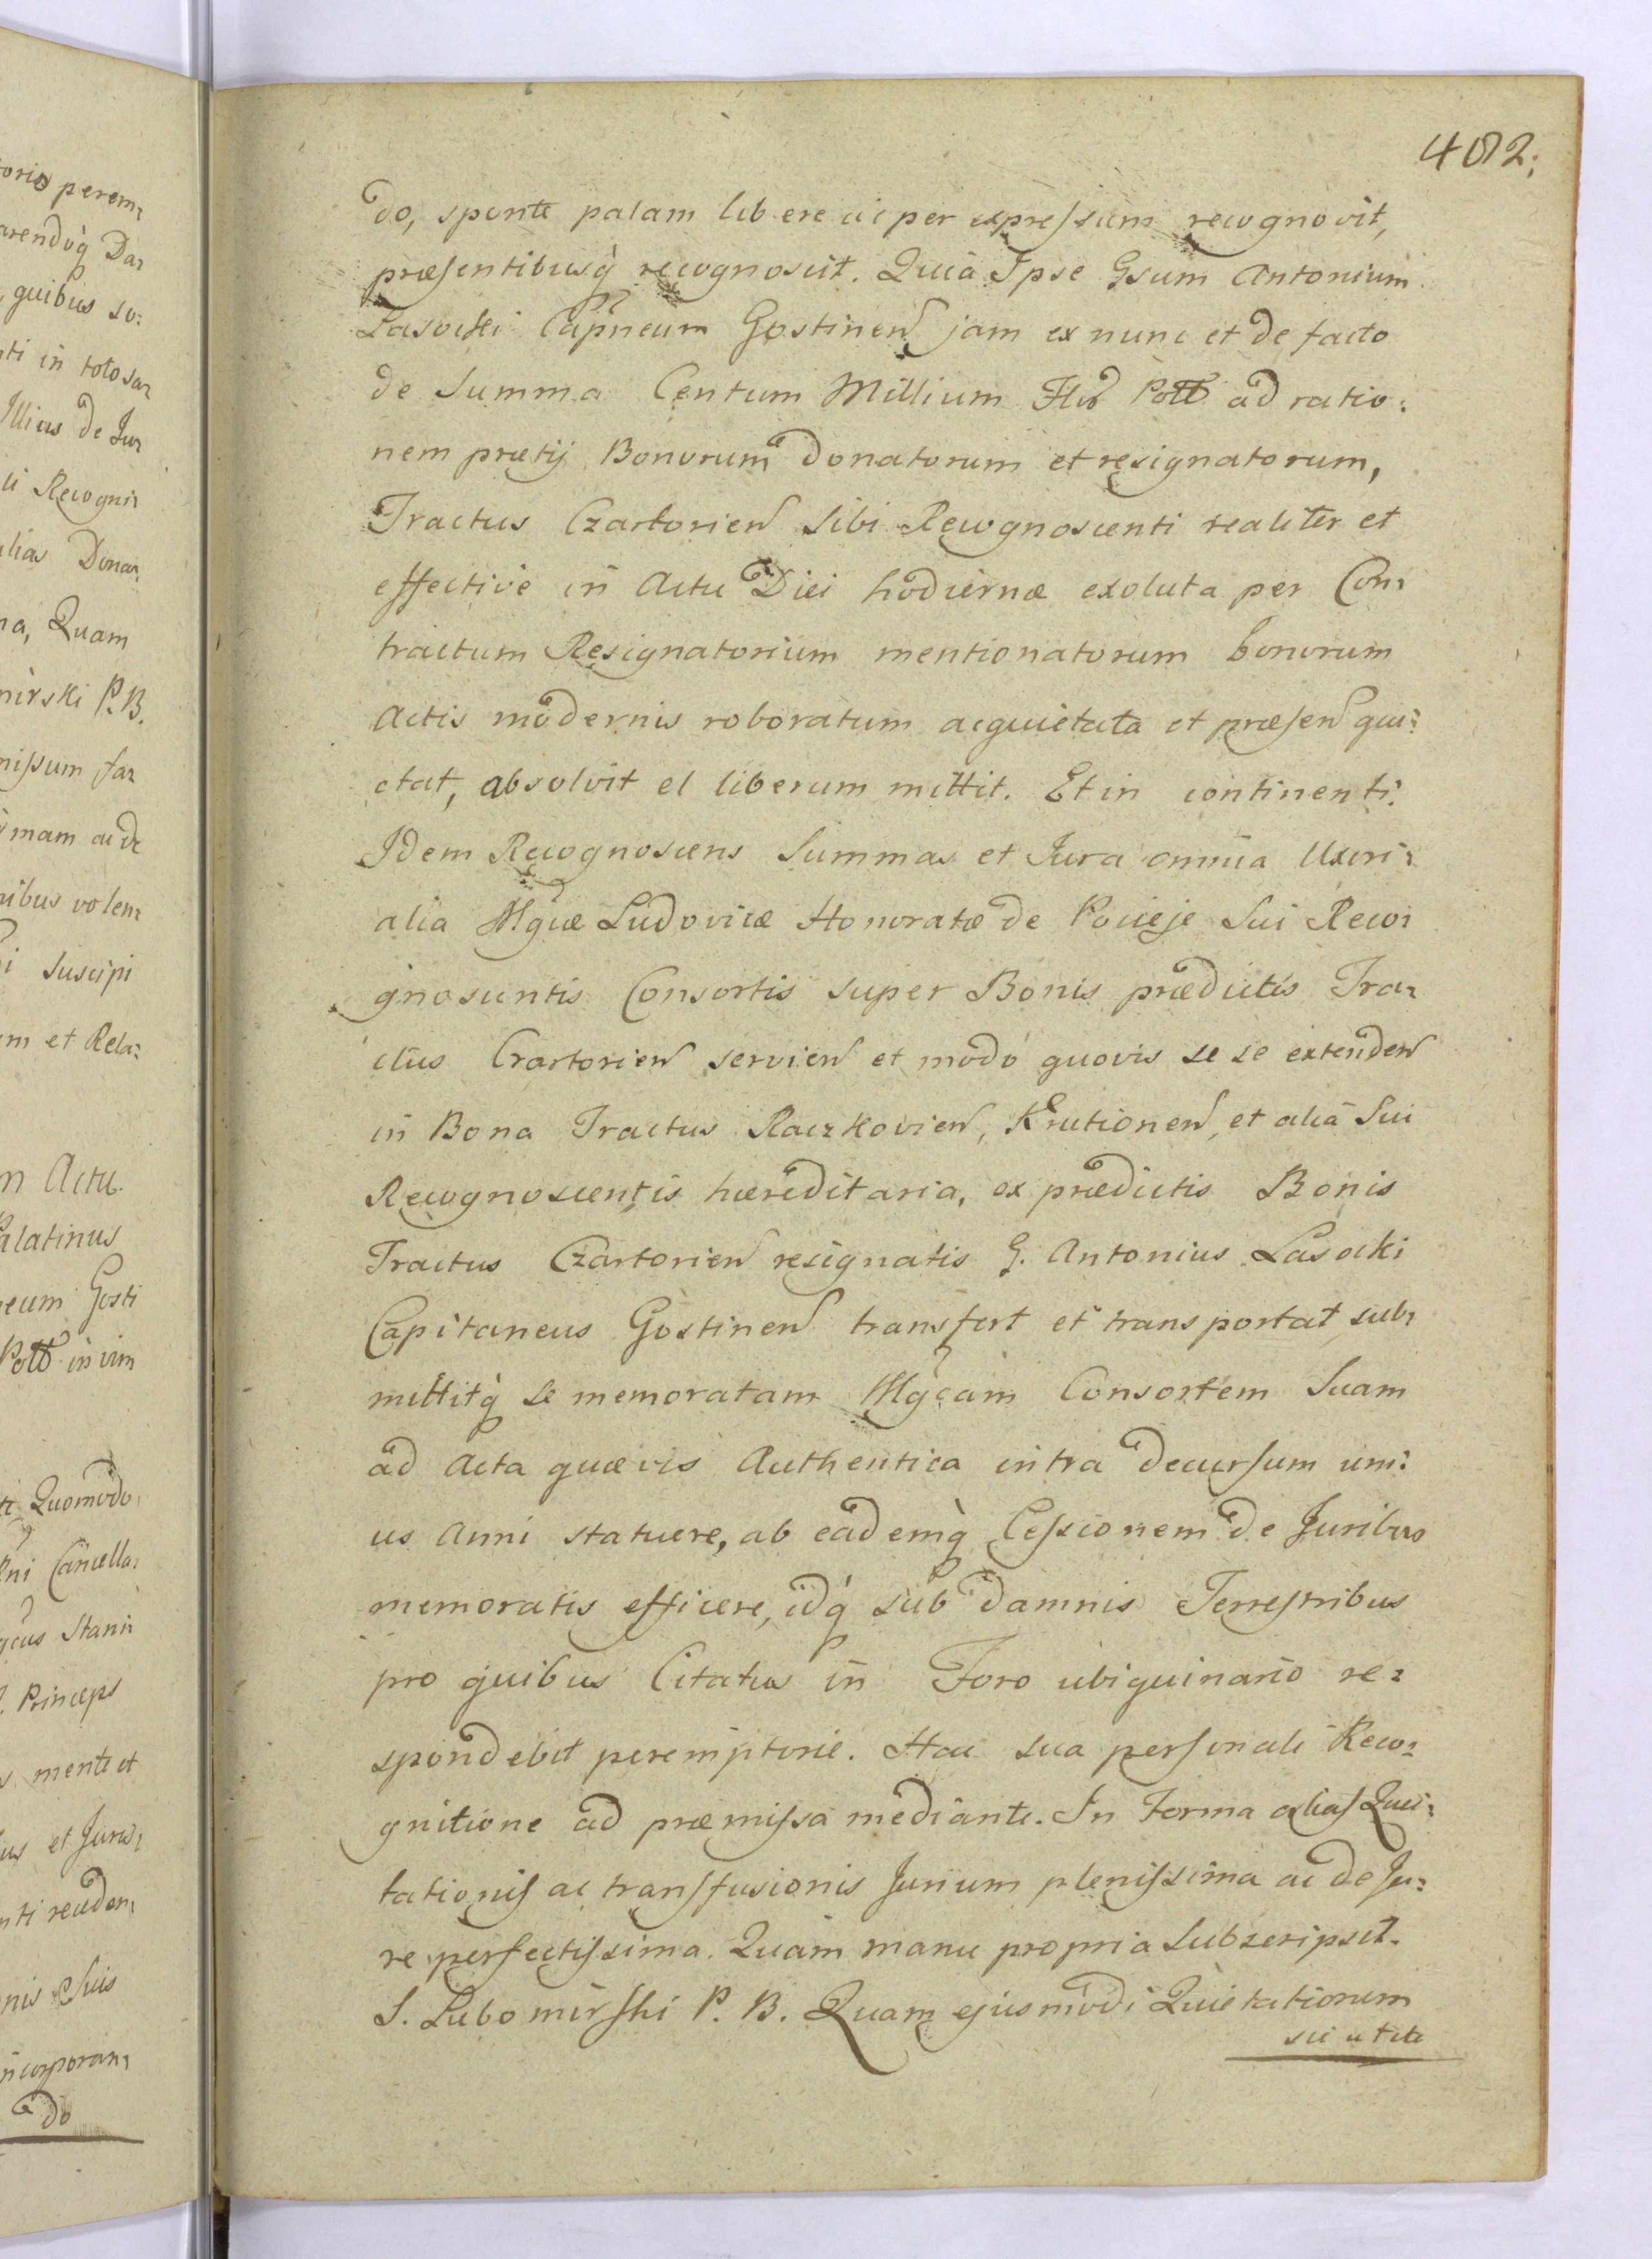 402.
do, sponte palam libere ac per expressum recognovit,
præsentibusq́ recognoscit. Quia Ipse Gsum Antonium
Lasocki Capneum Gostinen jam ex nunc et de facto
de Summa Centum Millium Flo Poll ad ratio:
nem prætij Bonorum donatorum et resignatorum,
Tractus Czartorien Sibi Recognoscenti realiter et
effective in Actu Diei hodiernæ exoluta per Con:
tractum Resignatorium mentionatorum bonorum
Actis modernis roboratum acquietata et præsen qui:
etat, absolvit et liberum mittit. Et in continenti.
Idem Recognoscens Summas et Jura omnia Uxori:
alia Mgcæ Ludovicæ Honoratæ de Pocieje Sui Reco:
gnoscentis Consortis super Bonis prædictis Tra:
ctus Czartorien servien et modo quovis se se extenden
in Bona Tractus Raczkovien, Krutionen, et alia Sui
Recognoscentis hæreditaria, ex prædictis Bonis
Tractus Czartorien resignatis G. Antonius Lasocki
Capitaneus Gostinen transfert et transportat, sub:
mittitq́ se memoratam Mgcam Consortem Suam
ad Acta quævis Authentica intra decursum uni:
us Anni statuere, ab eademq́ Cessionem de Juribus
memoratis efficere, idq́ sub damnis Terrestribus
pro quibus Citatus in Foro ubiquinario re:
spondebit peremptorie. Hac sua personali Reco:
gnitione ad præmissa mediante. In Forma alias Qui:
tationis ac transfusionis Jurium plenissima ac de Ju:
re perfectissima. Quam manu propria Subscripsit.
S. Lubomirski P. B. Quam ejusmodi Quietationem